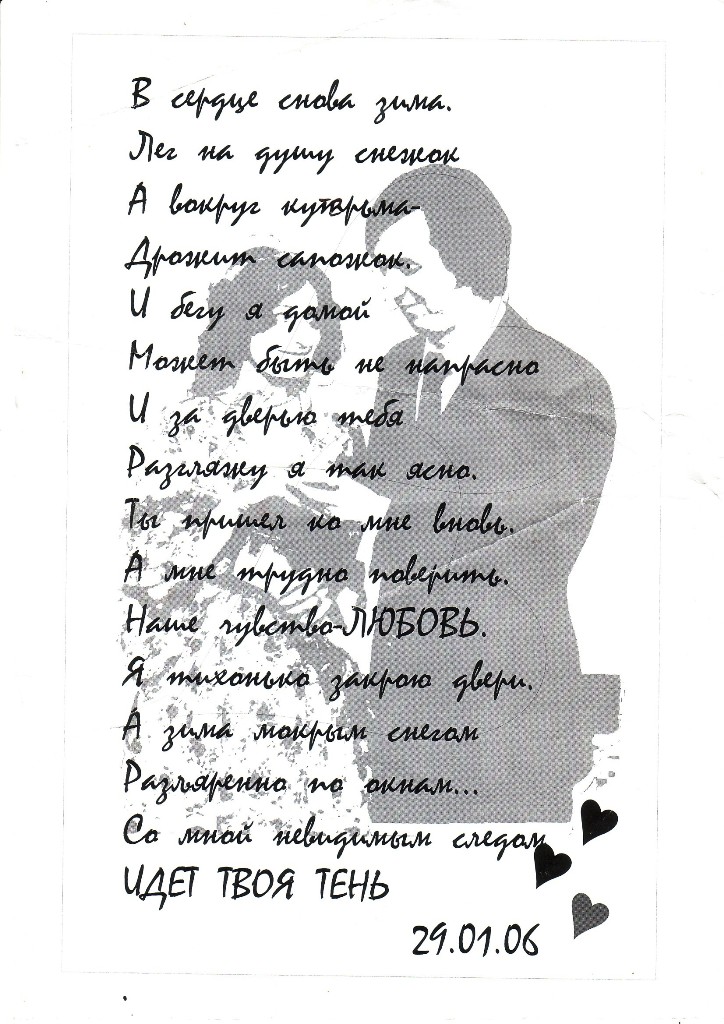 В сердце снова зима.
Лег на душу снежок
А вокруг кутерьма-
Дрожит сапожок.
И бегу я домой
Может быть не напрасно
И за дверью тебя
Разгляжу я так ясно.
Ты пришел ко мне вновь.
А мне трудно поверить.
Наше чувство-ЛЮБОВЬ.
Я тихонько закрою двери.
А зима мокрым снегом
Разъяренно по окнам...
Со мной невидимым следом
ИДЕТ ТВОЯ ТЕНЬ
29.01.06